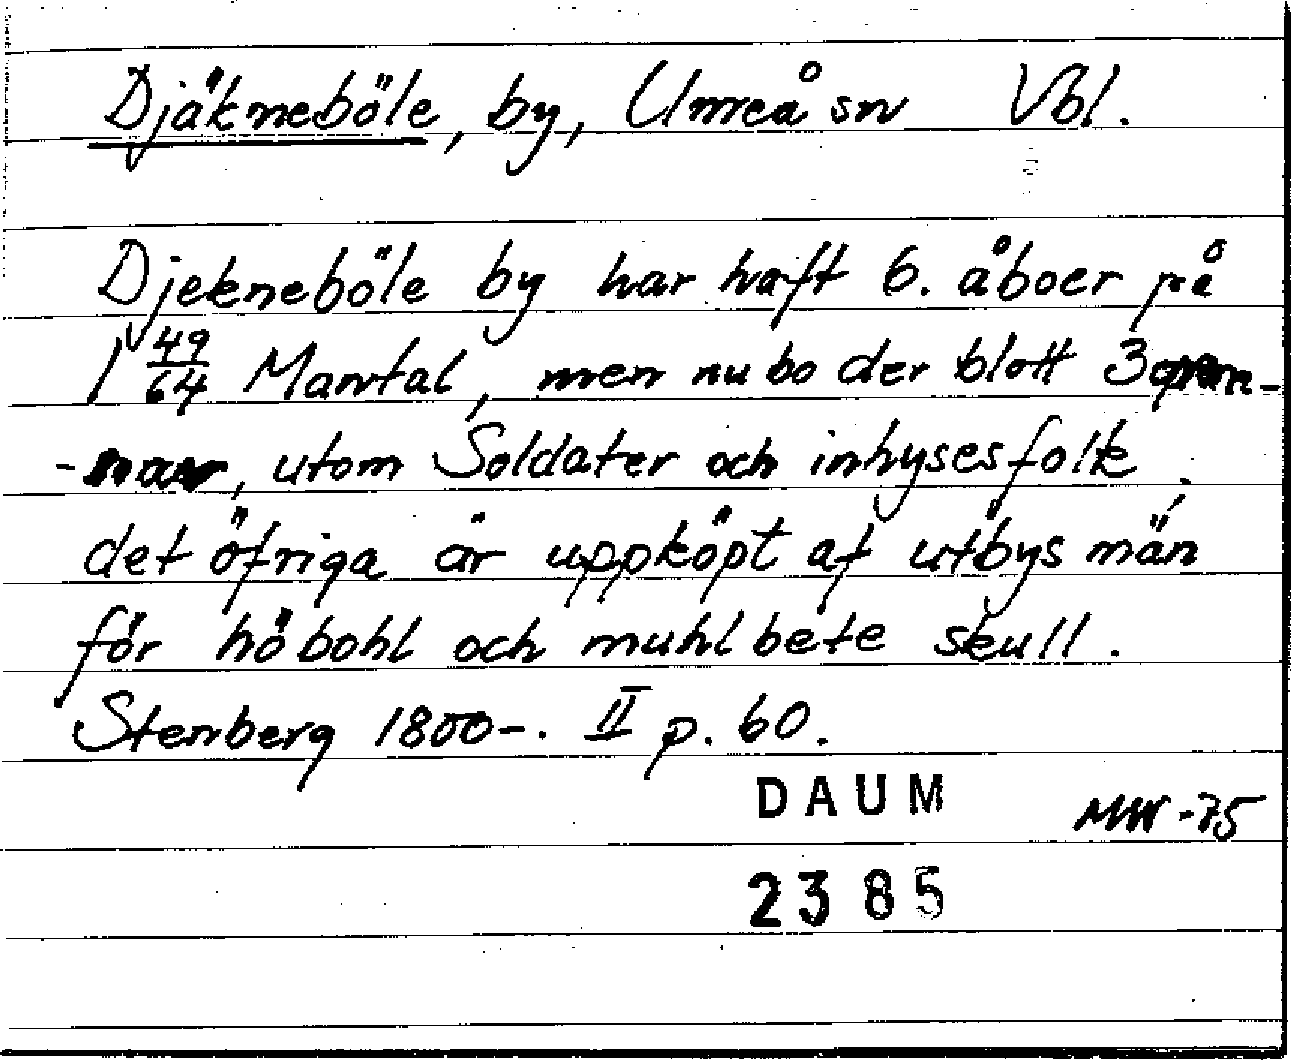 Djäkneböle, by, Umeå sn Vbl.
Djekneböle by har haft 6. åboer på
1 49/64 Mantal, men nu bo der blott 3
utom Soldater och inhysesfolk;
det öfriga är uppköpt af utbys män
för höbohl och muhlbete skull.
Stenberg 1800-. II p. 60.
DAUM
MW -75
2385